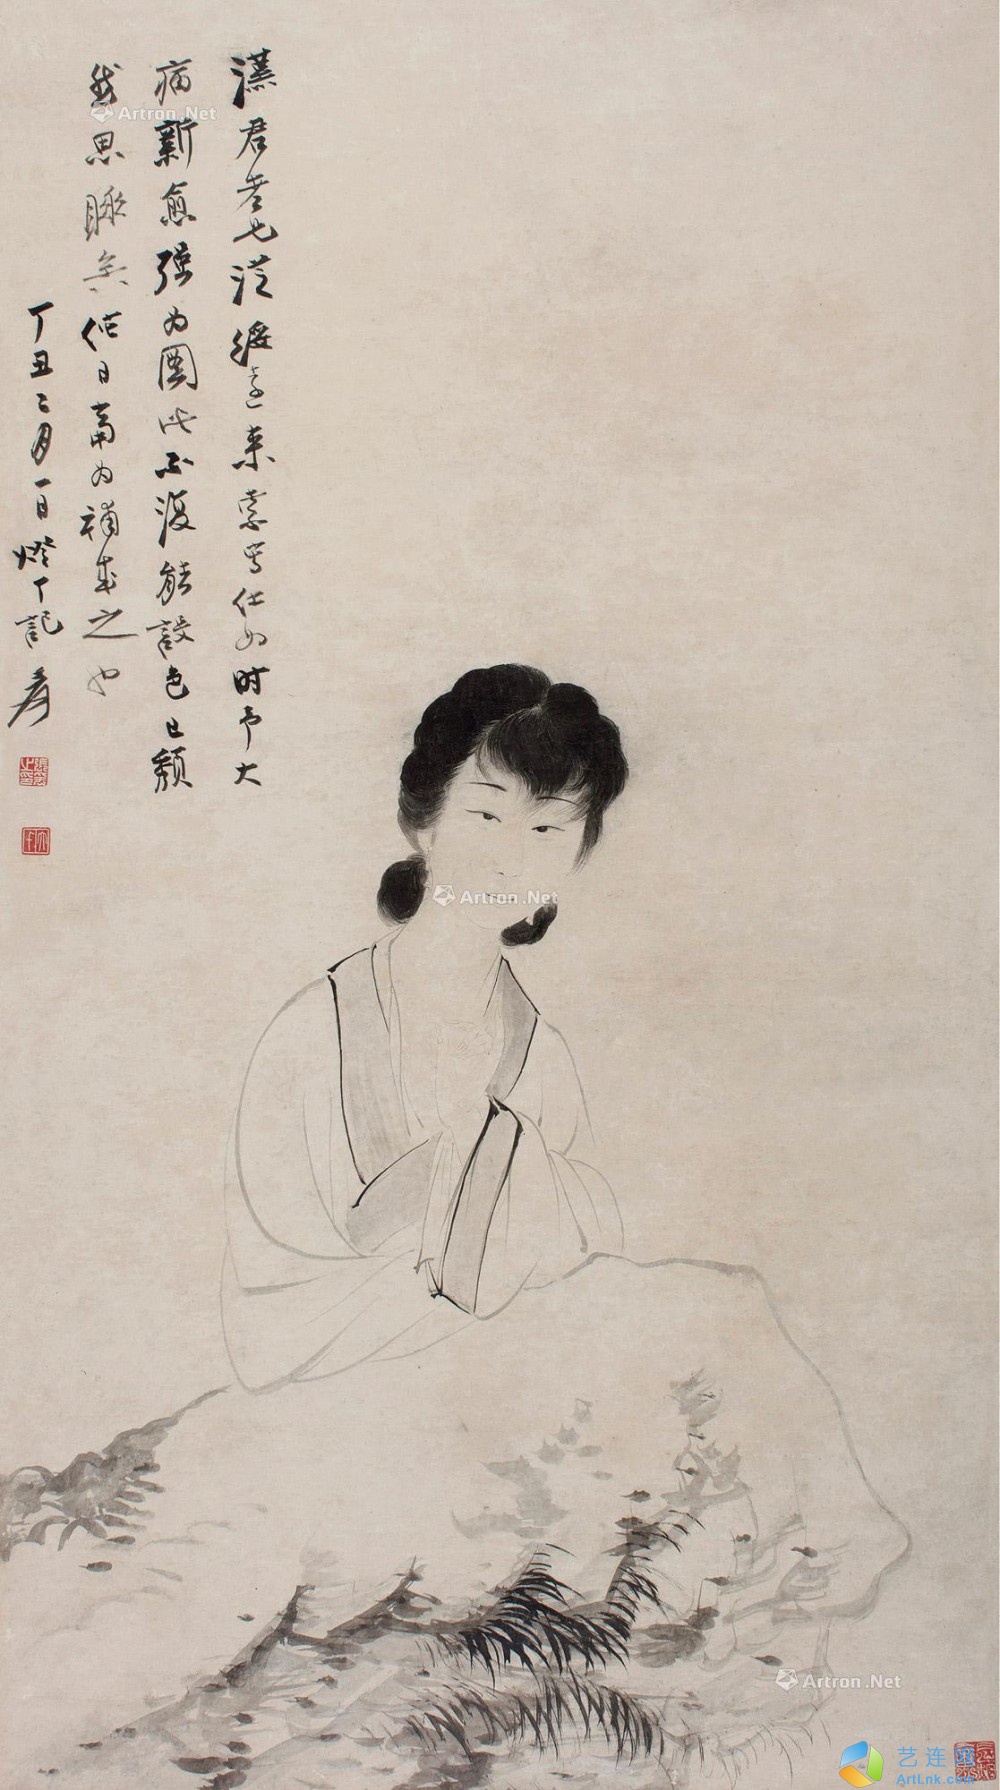 君老七從綏遠來索寫仕女時予大
病新愈強為圖此不復能設色已頹
然思睡矣他日當為補成之也
丁丑二月一日燈下記 爰
張爰之印
大千
Artron.Net
Artron.Net
Artron.Net
艺连
ArtLnk.com